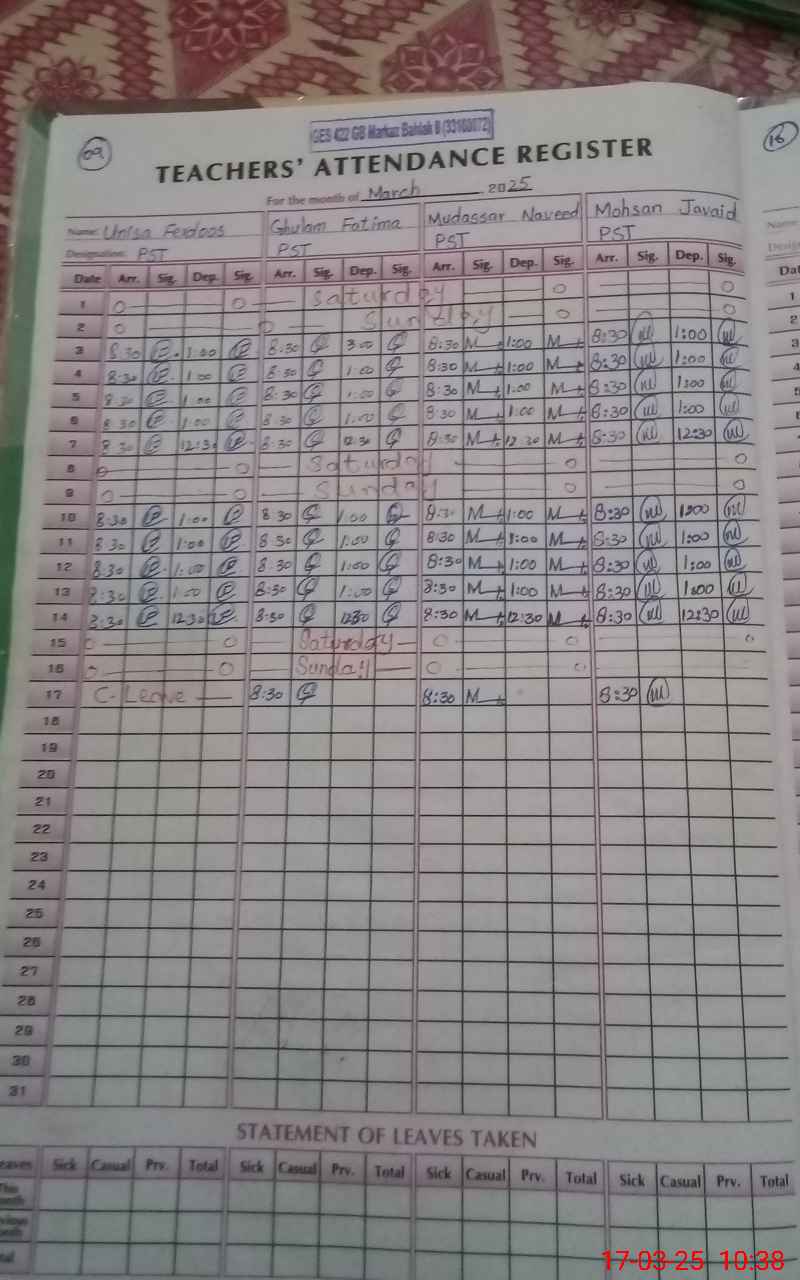 GES 422 GB Markaz Bahlak B (33180072)
09
16
TEACHERS' ATTENDANCE REGISTER
For the month of March 2025
Name: Unisa Ferdoos Ghulam Fatima Mudassar Naveed Mohsan Javaid
Designation: PST PST PST PST
Date Arr. Sig. Dep. Sig. Arr. Sig. Dep. Sig. Arr. Sig. Dep. Sig. Arr. Sig. Dep. Sig.
1 Saturday
2 Sunday
3 8:30 1:00 8:30 3:00 8:30 M 1:00 M 8:30 1:00
4 8:30 1:00 8:30 1:00 8:30 M 1:00 M 8:30 1:00
5 8:30 1:00 8:30 1:00 8:30 M 1:00 M 8:30 1:00
6 8:30 1:00 8:30 1:00 8:30 M 1:00 M 8:30 1:00
7 8:30 12:30 8:30 12:30 8:30 M 12:30 M 8:30 12:30
8 Saturday
9 Sunday
10 8:30 1:00 8:30 1:00 8:30 M 1:00 M 8:30 1:00
11 8:30 1:00 8:30 1:00 8:30 M 1:00 M 8:30 1:00
12 8:30 1:00 8:30 1:00 8:30 M 1:00 M 8:30 1:00
13 8:30 1:00 8:30 1:00 8:30 M 1:00 M 8:30 1:00
14 8:30 12:30 8:30 12:30 8:30 M 12:30 M 8:30 12:30
15 Saturday
16 Sunday
17 C. Leave 8:30 8:30 M 8:30
18
19
20
21
22
23
24
25
26
27
28
29
30
31
STATEMENT OF LEAVES TAKEN
eaves Sick Casual Prv. Total Sick Casual Prv. Total Sick Casual Prv. Total Sick Casual Prv. Total
17-03-25 10:38